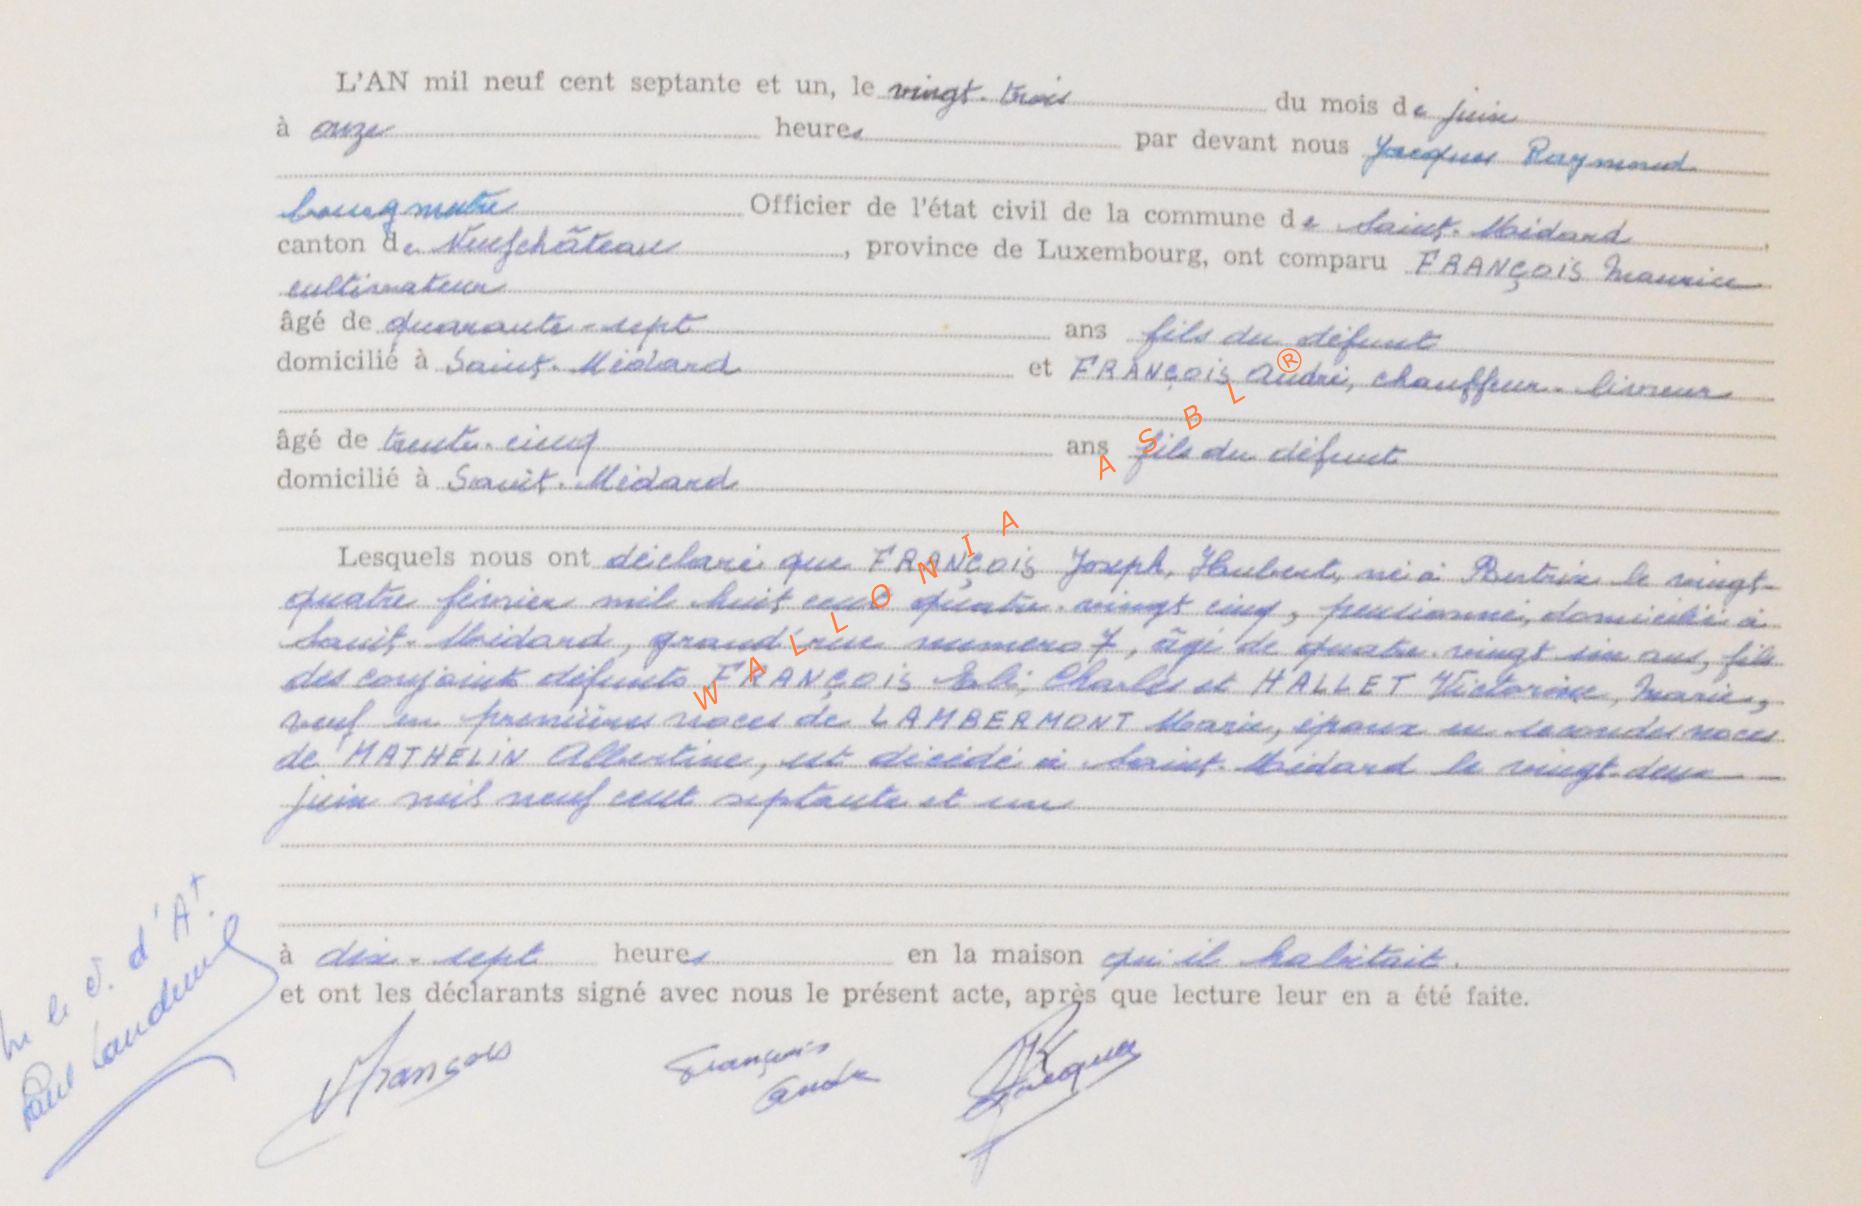 L'AN mil neuf cent septante et un, le vingt-trois du mois de juin
à onze heures par devant nous Jacques Raymond
bourgmestre Officier de l'état civil de la commune de Saint-Médard
canton de Neufchâteau, province de Luxembourg, ont comparu FRANÇOIS Maurice
cultivateur
âgé de quarante-sept ans fils du défunt
domicilié à Saint-Médard et FRANÇOIS André, chauffeur-livreur
âgé de trente-cinq ans fils du défunt
domicilié à Saint-Médard
Lesquels nous ont déclaré que FRANÇOIS Joseph, Hubert, né à Bertrix le vingt-
quatre février mil huit cent quatre-vingt cinq, pensionné, domicilié à
Saint-Médard, grand'rue numero 7, âgé de quatre-vingt six ans, fils
des conjoints défunts FRANÇOIS Charles et HALLET Victorine, Marie,
veuf en premières noces de LAMBERMONT Marie, époux en secondes noces
de MATHELIN Albertine, est décédé à Saint-Médard le vingt-deux
juin mil neuf cent septante et un
à dix-sept heures en la maison qu'il habitait.
et ont les déclarants signé avec nous le présent acte, après que lecture leur en a été faite.
François
François
André
Jacques
d'At.
Paul
WALLONIA ASBL ®